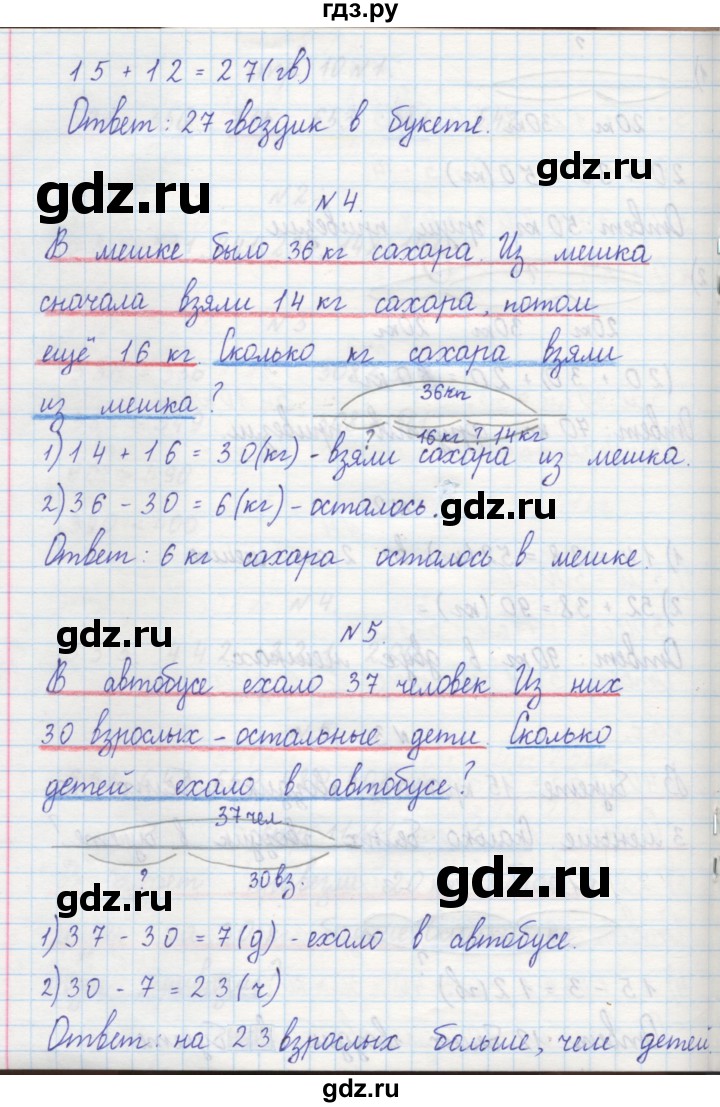 гдз.ру
15 + 12 = 27(гв)
Ответ: 27 гвоздик в букете.
gdz.ru
gdz.ru
N 4.
В мешке было 36 кг сахара. Из мешка
сначала взяли 14 кг сахара, потом
ещё 16 кг. Сколько кг сахара взяли
из мешка?
36кг
? 16кг ? 14кг
1) 14 + 16 = 30(кг) - взяли сахара из мешка.
2) 36 - 30 = 6(кг) - осталось.
gdz.ru
Ответ: 6 кг сахара осталось в мешке.
gdz.ru
N 5.
В автобусе ехало 37 человек. Из них
30 взрослых - остальные дети. Сколько
детей ехало в автобусе?
37чел
? 30вз.
gdz.ru
gdz.ru
1) 37 - 30 = 7(д) - ехало в автобусе.
2) 30 - 7 = 23(ч)
Ответ: на 23 взрослых больше, чем детей.
gdz.ru